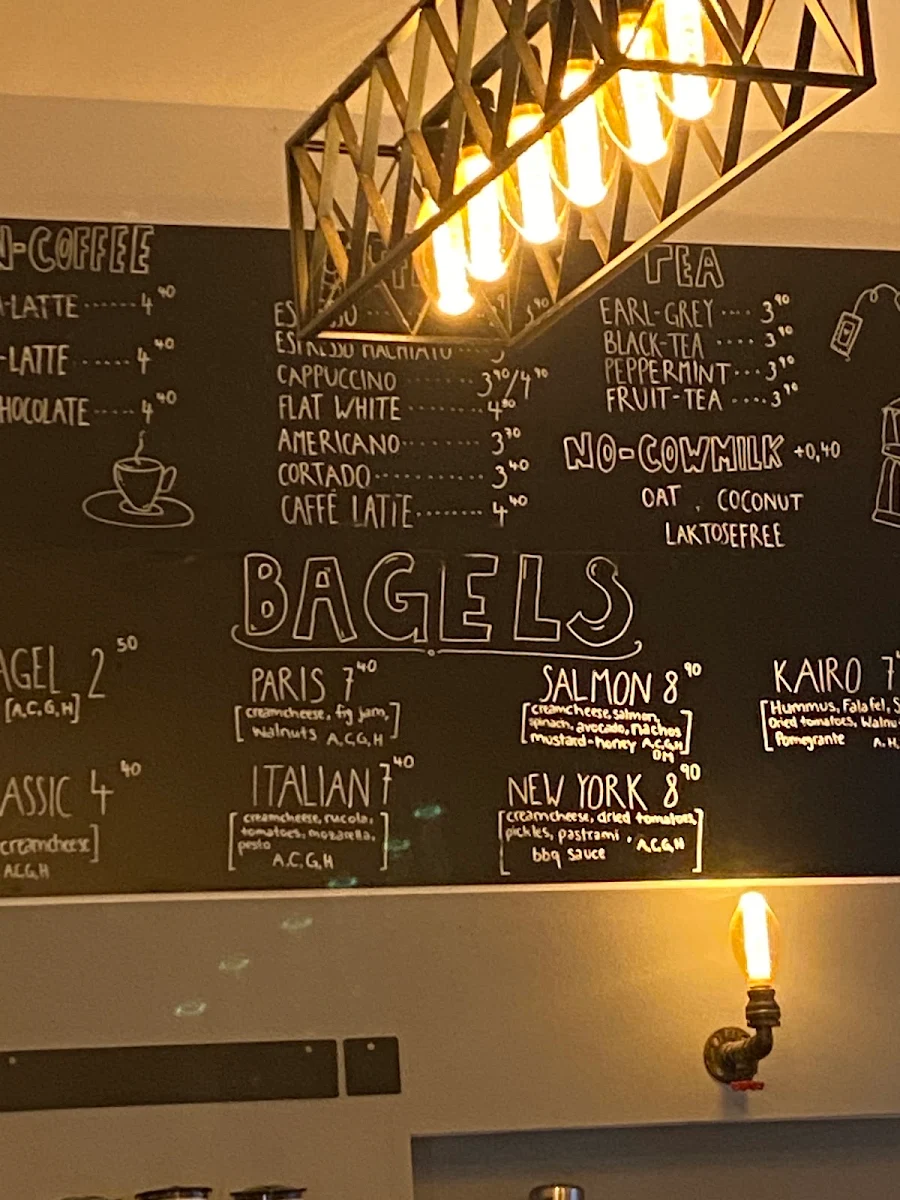 N-COFFEE
A-LATTE ...... 4 40
-LATTE ...... 4 40
HOCOLATE .... 4 40
ESPRESSO MACHIATO
CAPPUCCINO ........ 3 90/4 90
FLAT WHITE ........ 4 80
AMERICANO ........ 3 70
CORTADO ........... 3 40
CAFFÉ LATTE ........ 4 40
TEA
EARL-GREY .... 3 90
BLACK-TEA .... 3 90
PEPPERMINT ... 3 90
FRUIT-TEA .... 3 90
NO-COWMILK +0,40
OAT , COCONUT
LAKTOSEFREE
BAGELS
AGEL 2 50
[A,C,G,H]
ASSIC 4 40
creamcheese]
A,C,G,H
PARIS 7 40
[creamcheese, fig jam,
walnuts A,C,G,H]
ITALIAN 7 40
[creamcheese, rucola,
tomatoes, mozarella,
pesto
A,C,G,H]
SALMON 8 90
[creamcheese, salmon,
spinach, avocado, nachos
mustard-honey A,C,G,H
D,M]
NEW YORK 8 90
[creamcheese, dried tomatoes,
pickles, pastrami, A,C,G,H
bbq sauce]
KAIRO 7
[Hummus, Falafel, S
Dried tomatoes, Walnu
Pomegrante A, H,